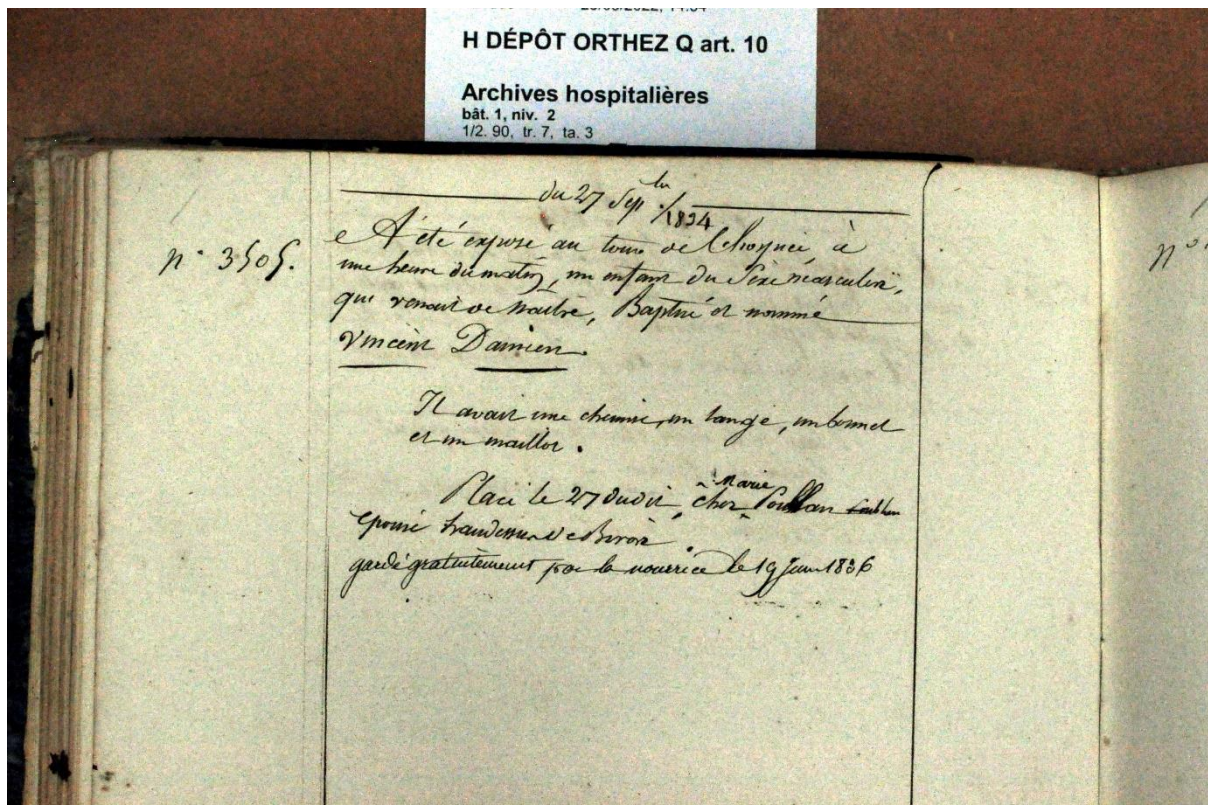 H DÉPÔT ORTHEZ Q art. 10
Archives hospitalières
bât. 1, niv. 2
1/2. 90, tr. 7, ta. 3
du 27 Sep.bre 1834
n° 3505.
A été exposé au tour de l'hospice à
une heure du matin, un enfant du Sexe masculin,
qui venait de naitre, Baptisé et nommé
Vincent Damien.
Il avait une chemise, un lange, un bonnet
et un maillot.
Placé le 27 dudit, chez Marie
épouse de
gardé gratuitement par la nourrice le 19 juin 1836
n°